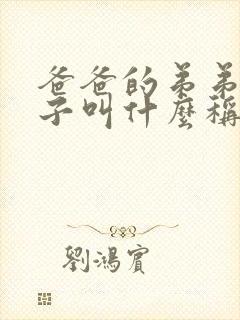 爸爸的弟弟
子叫什麼稱
劉鴻賓